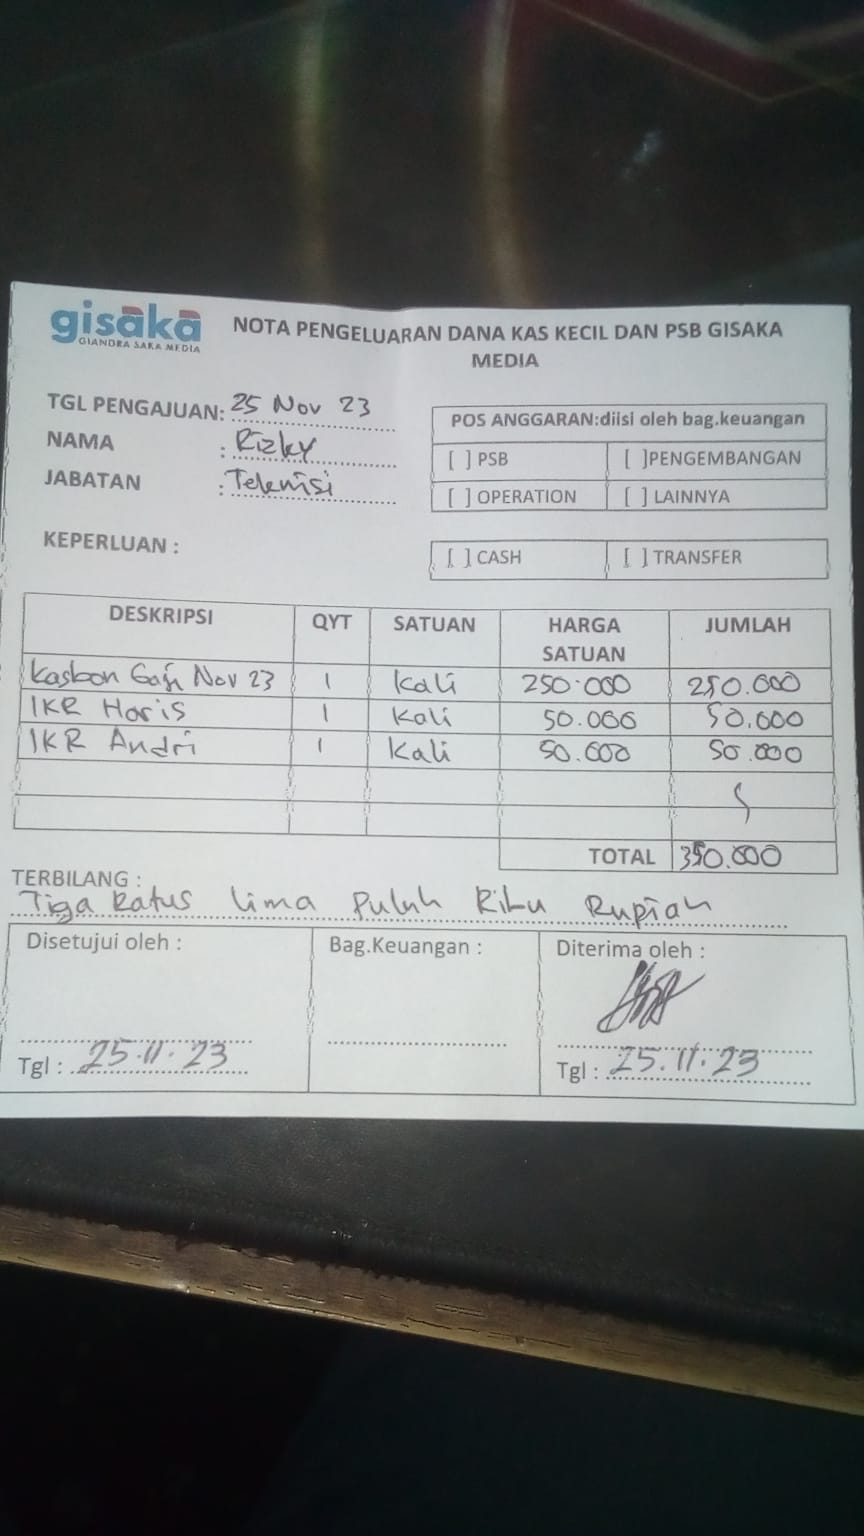 gisaka
GIANDRA SAKA MEDIA
NOTA PENGELUARAN DANA KAS KECIL DAN PSB GISAKA
MEDIA
TGL PENGAJUAN: 25 Nov 23
NAMA : Rizky
JABATAN : Teknisi
POS ANGGARAN:diisi oleh bag.keuangan
[ ] PSB [ ]PENGEMBANGAN
[ ] OPERATION [ ] LAINNYA
KEPERLUAN :
[ ] CASH [ ] TRANSFER
DESKRIPSI QYT SATUAN HARGA SATUAN JUMLAH
Kasbon Gaji Nov 23 1 Kali 250.000 250.000
IKR Haris 1 Kali 50.000 50.000
IKR Andri 1 Kali 50.000 50.000
TOTAL 350.000
TERBILANG :
Tiga Ratus Lima Puluh Ribu Rupiah
Disetujui oleh : Bag.Keuangan : Diterima oleh :
Tgl : 25.11.23 Tgl : 25.11.23